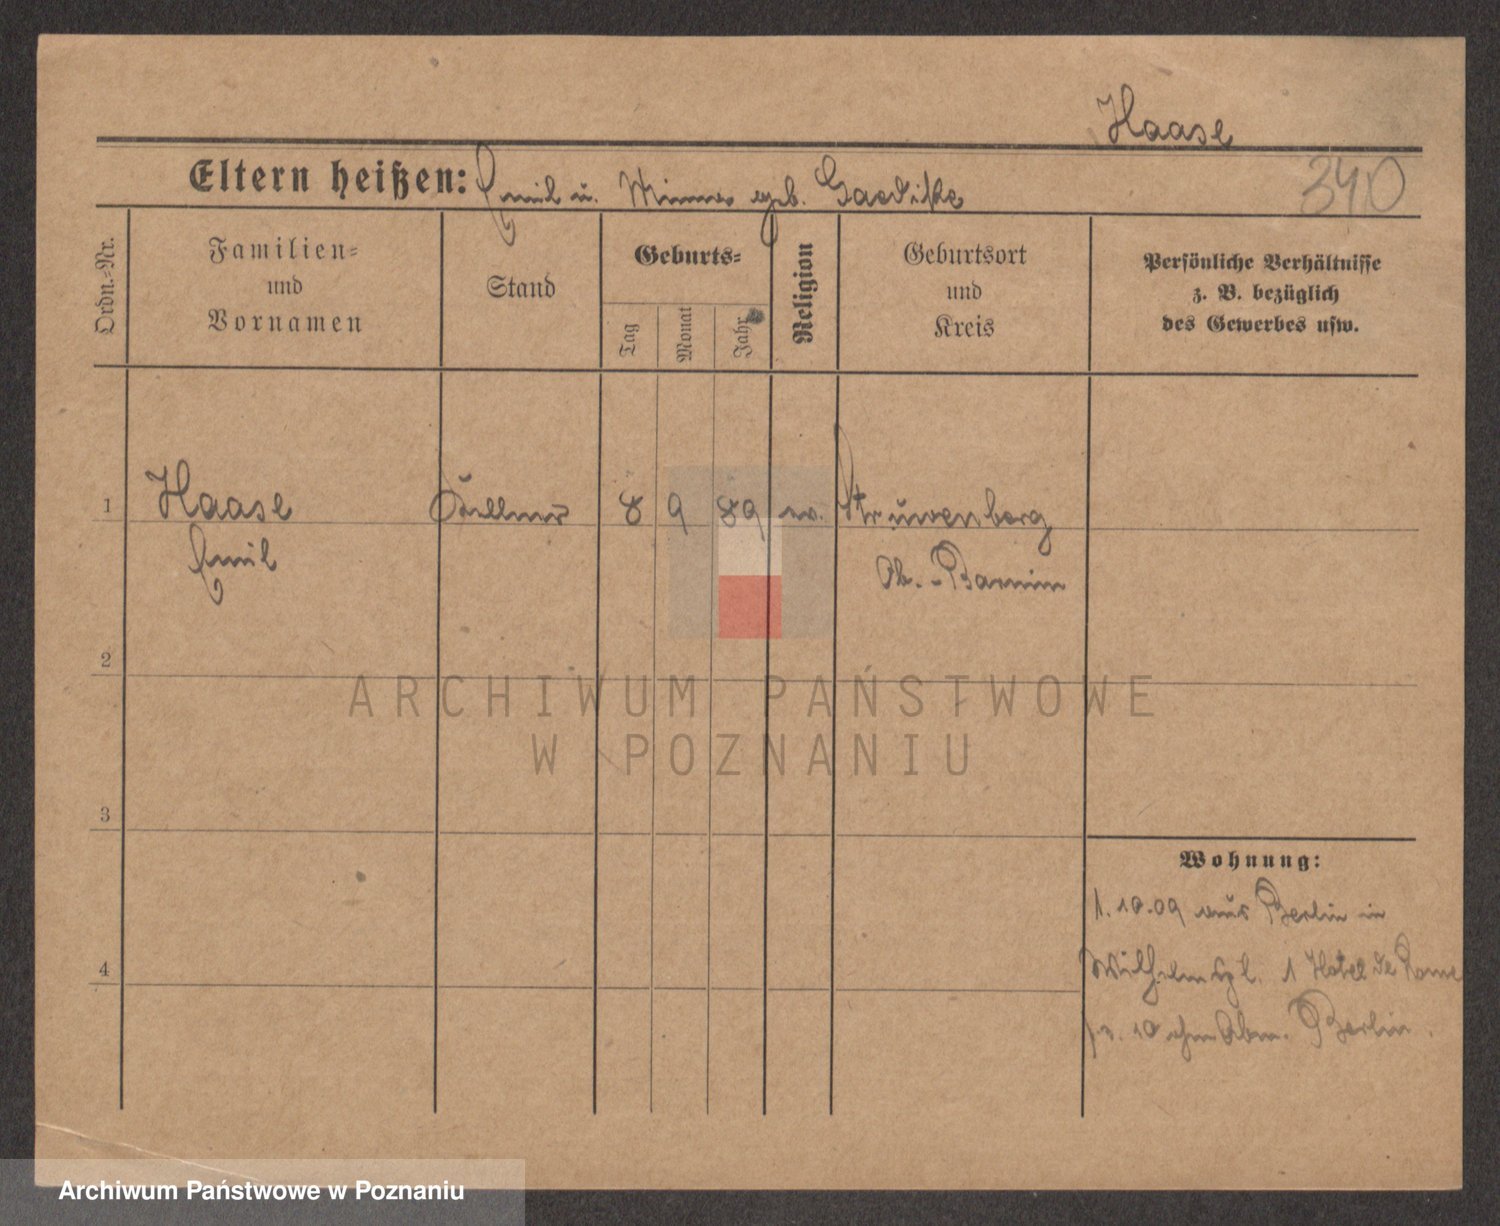 Haase
Eltern heißen: Emil u. Minna geb. Gaedicke
340
Ordn.-Nr.
Familien-
und
Vornamen
Stand
Geburts-
Tag
Monat
Jahr
Religion
Geburtsort
und
Kreis
Persönliche Verhältnisse
z. B. bezüglich
des Gewerbes usw.
1
Haase Kellner 8 9 89 ev. Struwenberg
Emil
Ob.-Barnim
2
ARCHIWUM PAŃSTWOWE
W POZNANIU
3
4
Wohnung:
1.10.09 aus Berlin in
Wilhelmspl. 1 Hotel de Rome
10 ohne Abm. Berlin.
Archiwum Państwowe w Poznaniu